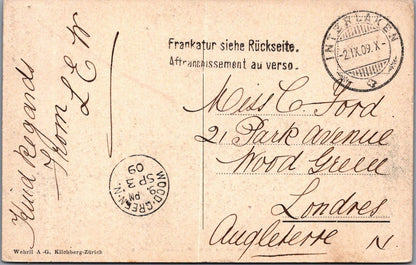 Kind Regards
From
L E W
Frankatur siehe Rückseite.
Affranchissement au verso.
INTERLAKEN
-2.IX.09.X-
Miss C. Ford
21 Park Avenue
Wood Green
Londres
Angleterre
N
WOOD-GREEN.N.
PM
SP 3
09
Wehrli A.-G. Kilchberg-Zürich